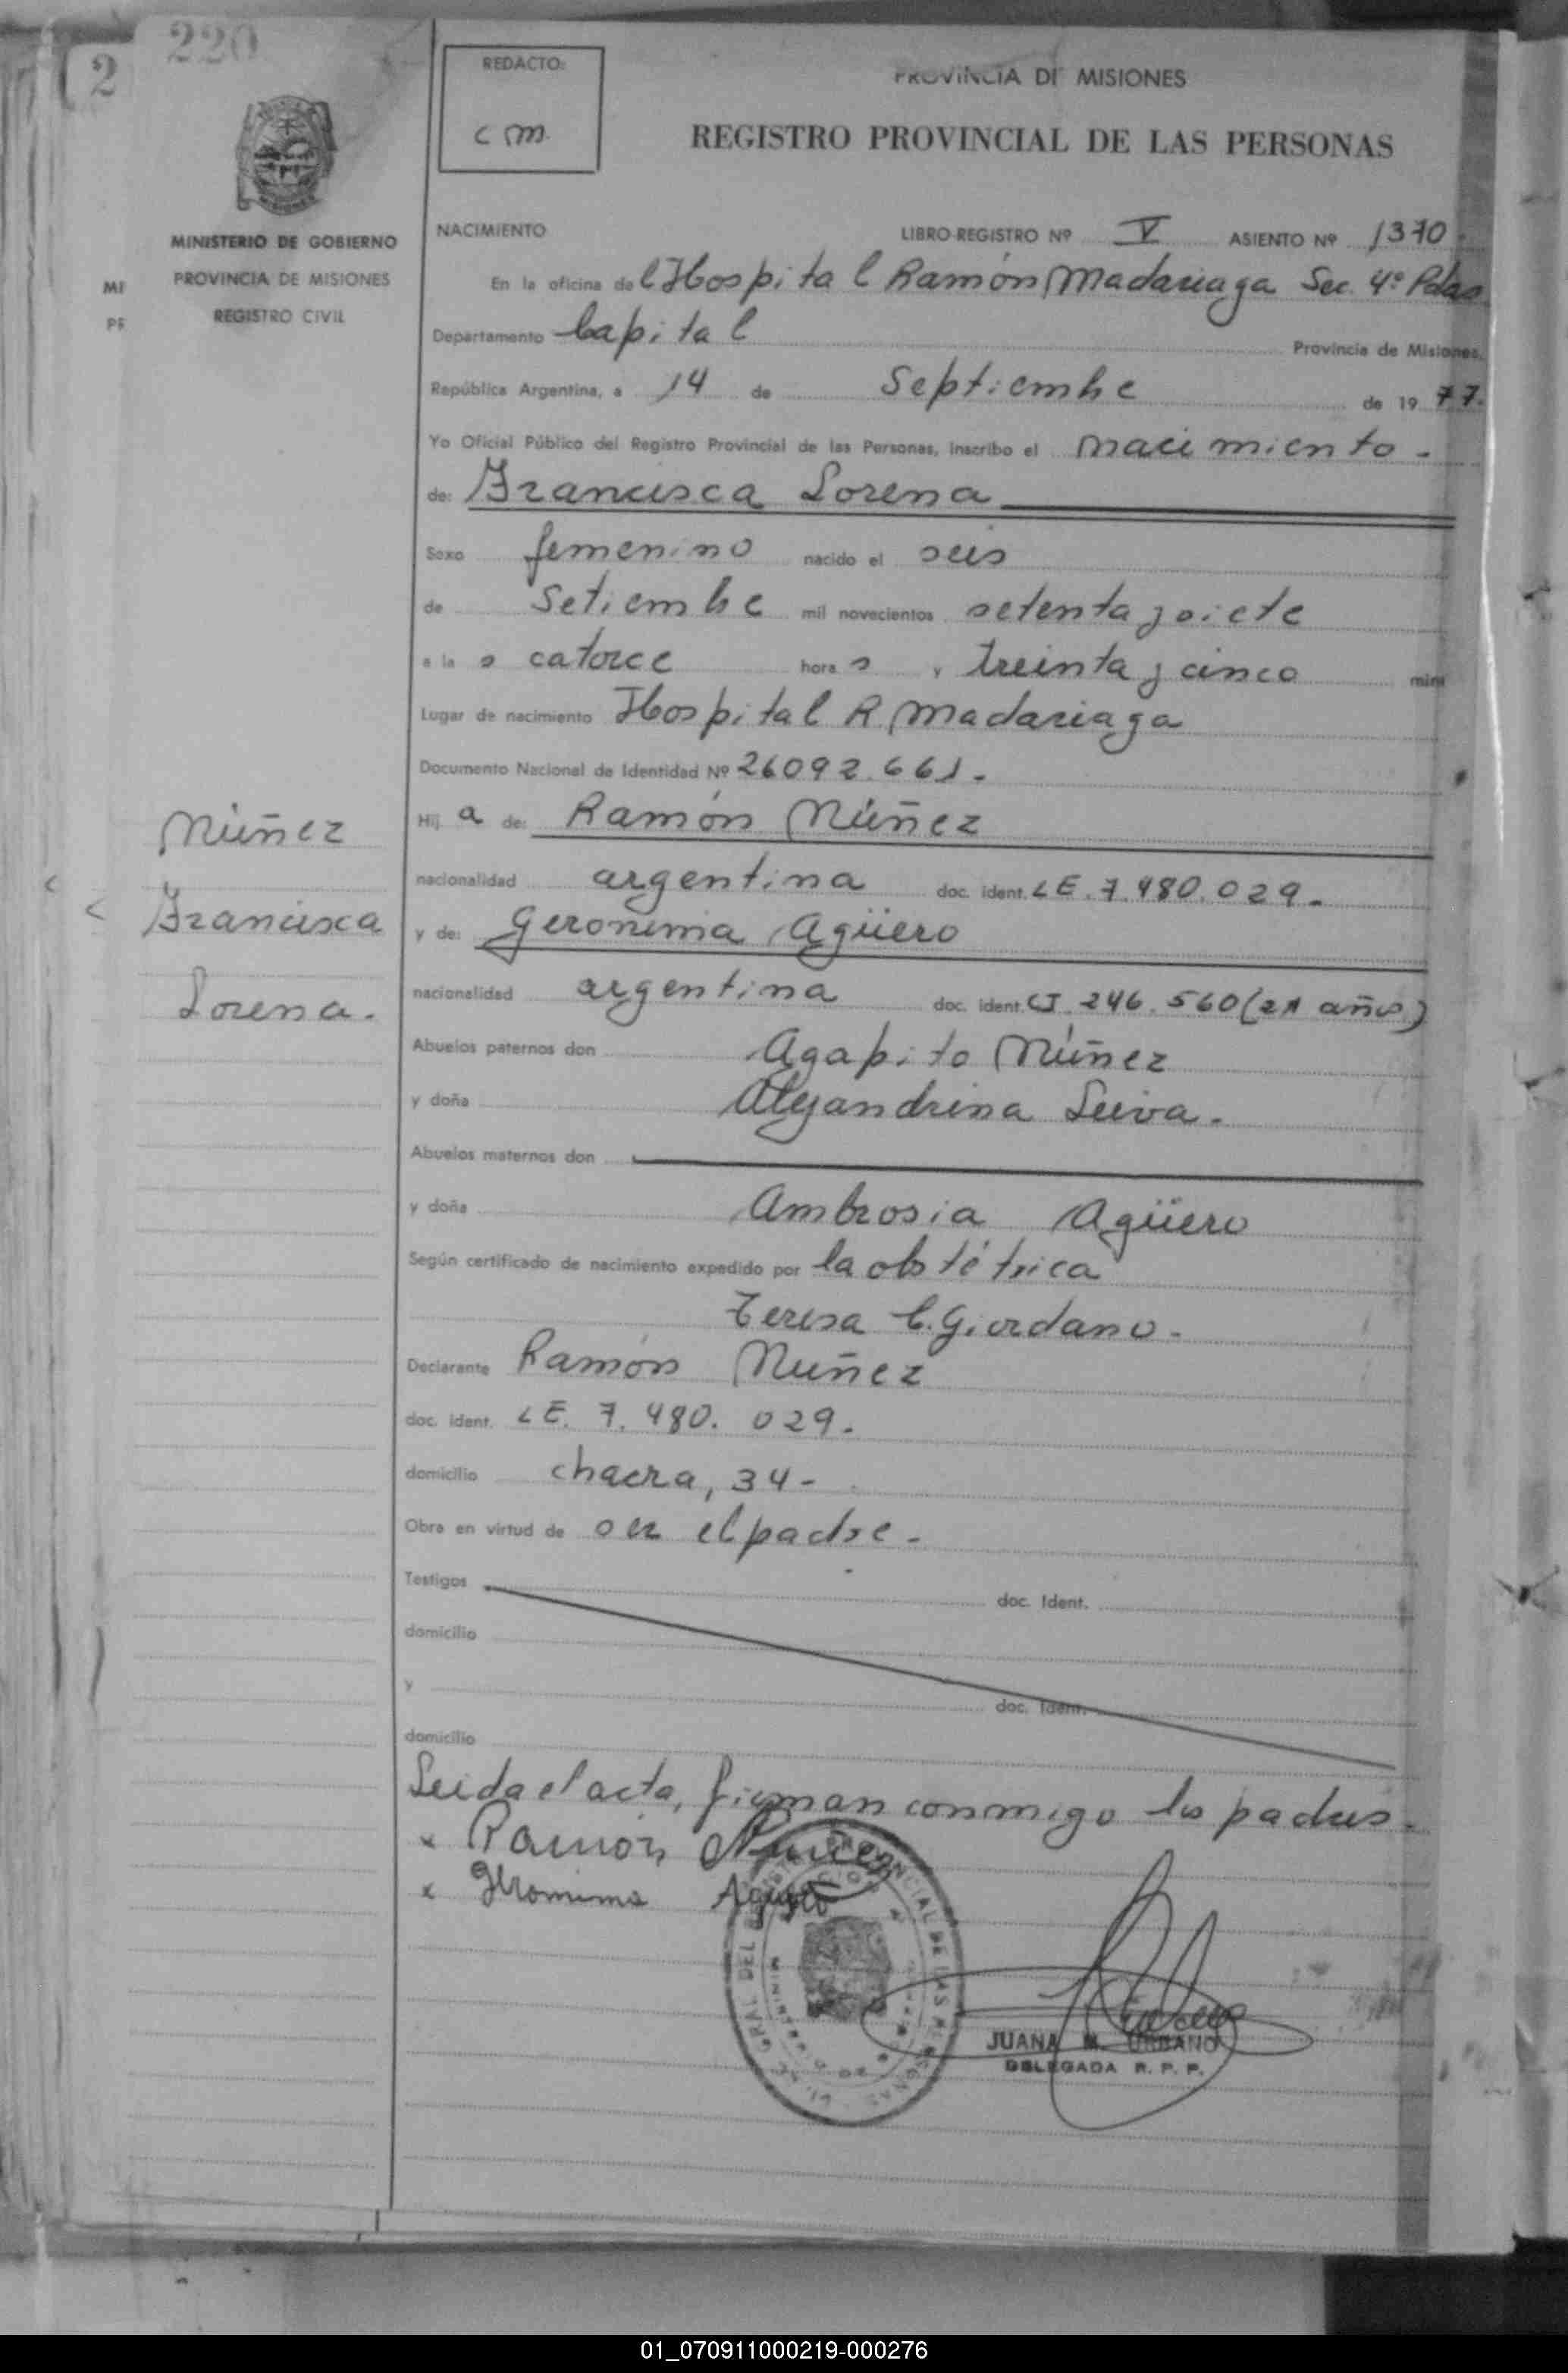 220
2
REDACTO:
C M.
PROVINCIA DE MISIONES
REGISTRO PROVINCIAL DE LAS PERSONAS
MINISTERIO DE GOBIERNO
PROVINCIA DE MISIONES
REGISTRO CIVIL
MI
PF
NACIMIENTO LIBRO-REGISTRO Nº V ASIENTO Nº 1370.
En la oficina del Hospital Ramón Madariaga Sec. 4º Pdas
Departamento Capital Provincia de Misiones,
República Argentina, a 14 de Septiembre de 1977.
Yo Oficial Público del Registro Provincial de las Personas, inscribo el nacimiento.
de: Francisca Lorena
Sexo femenino nacido el seis
de Setiembre mil novecientos setenta y siete
a las catorce horas y treinta y cinco min
Lugar de nacimiento Hospital R. Madariaga
Documento Nacional de Identidad Nº 26092.661.
Núñez
Francisca
Lorena.
Hija de: Ramón Núñez
nacionalidad argentina doc. ident. LE. 7.480.029.
y de: Geronima Agüero
nacionalidad argentina doc. ident. CI. 246.560 (21 años)
Abuelos paternos don Agapito Núñez
y doña Alejandrina Leiva.
Abuelos maternos don
y doña Ambrosia Agüero
Según certificado de nacimiento expedido por la obstétrica
Teresa C. Giordano.
Declarante Ramón Nuñez
doc. ident. LE. 7.480.029.
domicilio chacra, 34-
Obra en virtud de ser el padre.
Testigos doc. Ident.
domicilio
y doc. Ident.
domicilio
Leida el acta, firman conmigo los padres.
x Ramón Nuñez
x Jeronima Aguero
JUANA M. URBANO
DELEGADA R. P. P.
01_070911000219-000276